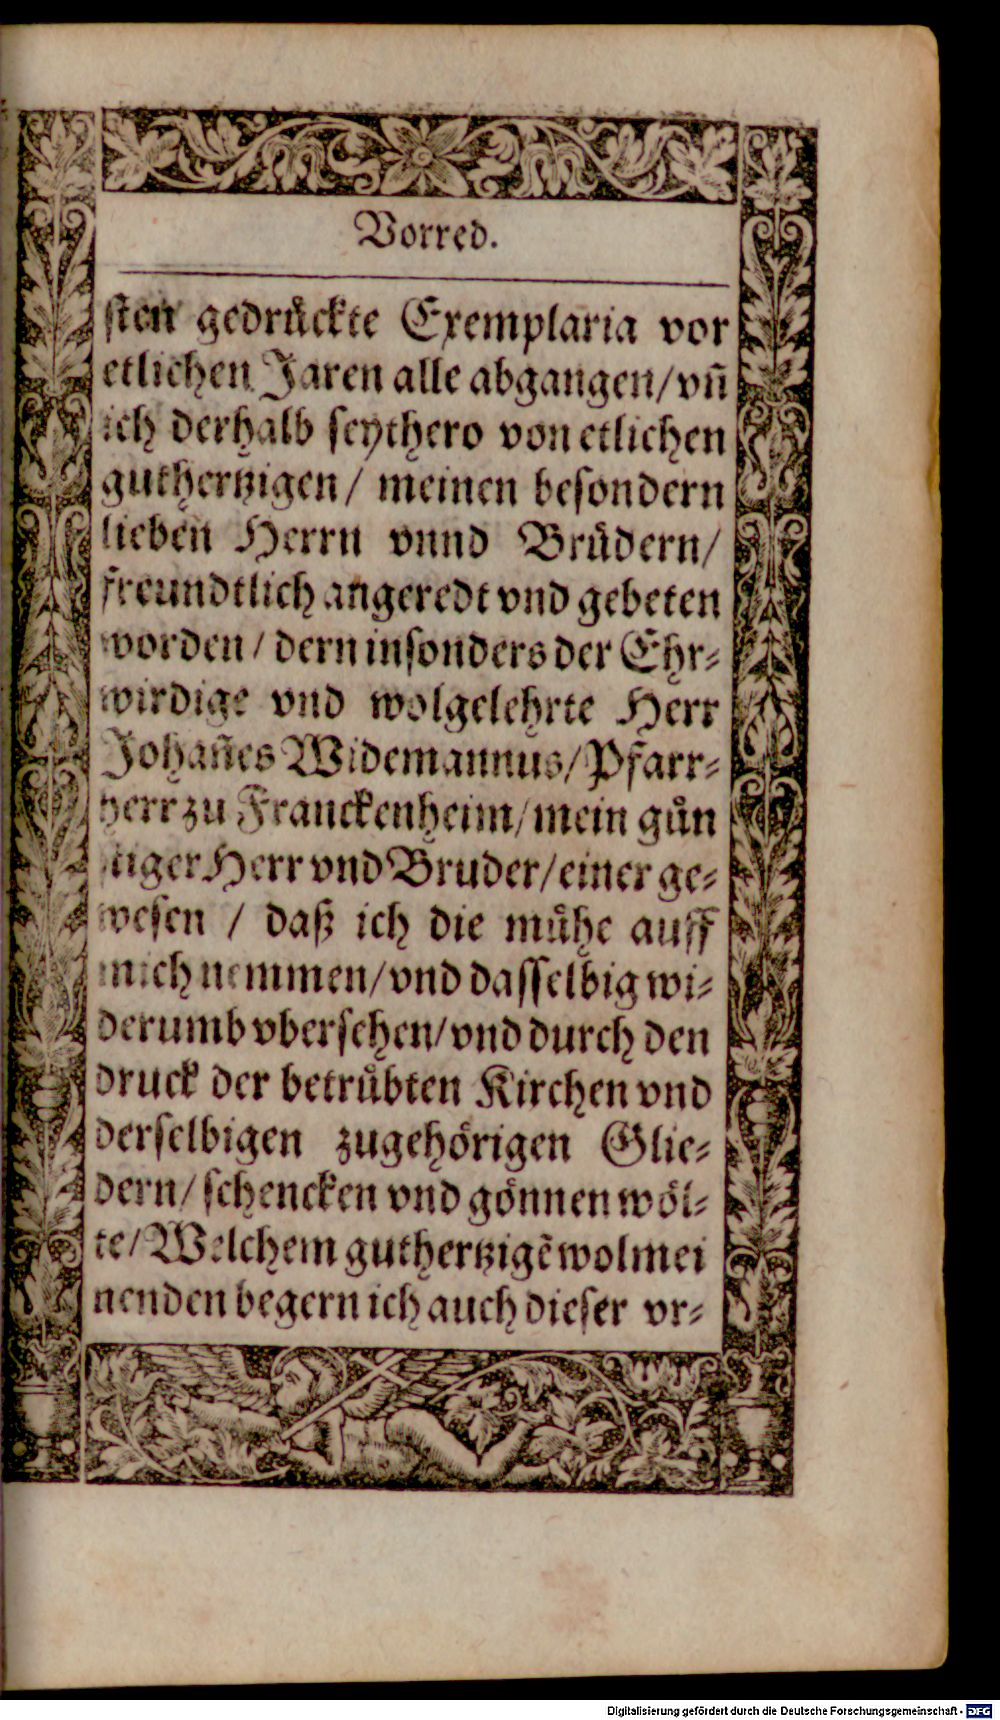 Vorred.
ſten gedruͤckte Exemplaria vor
etlichen Jaren alle abgangen/ vñ
ich derhalb ſeythero von etlichen
guthertzigen/ meinen beſondern
lieben Herrn vnnd Bruͤdern/
freundtlich angeredt vnd gebeten
worden/ dern inſonders der Ehr⸗
wirdige vnd wolgelehrte Herr
Johañes Widemannus/ Pfarr⸗
herr zu Franckenheim/ mein guͤn
ſtiger Herr vnd Bruder/ einer ge⸗
weſen / daß ich die muͤhe auff
mich nemmen/ vnd daſſelbig wi⸗
derumb vberſehen/ vnd durch den
druck der betruͤbten Kirchen vnd
derſelbigen zugehoͤrigen Glie⸗
dern/ ſchencken vnd goͤnnen woͤl⸗
te/ Welchem guthertzigẽ wolmei
nenden begern ich auch dieſer vr⸗
Digitalisierung gefördert durch die Deutsche Forschungsgemeinschaft - DFG